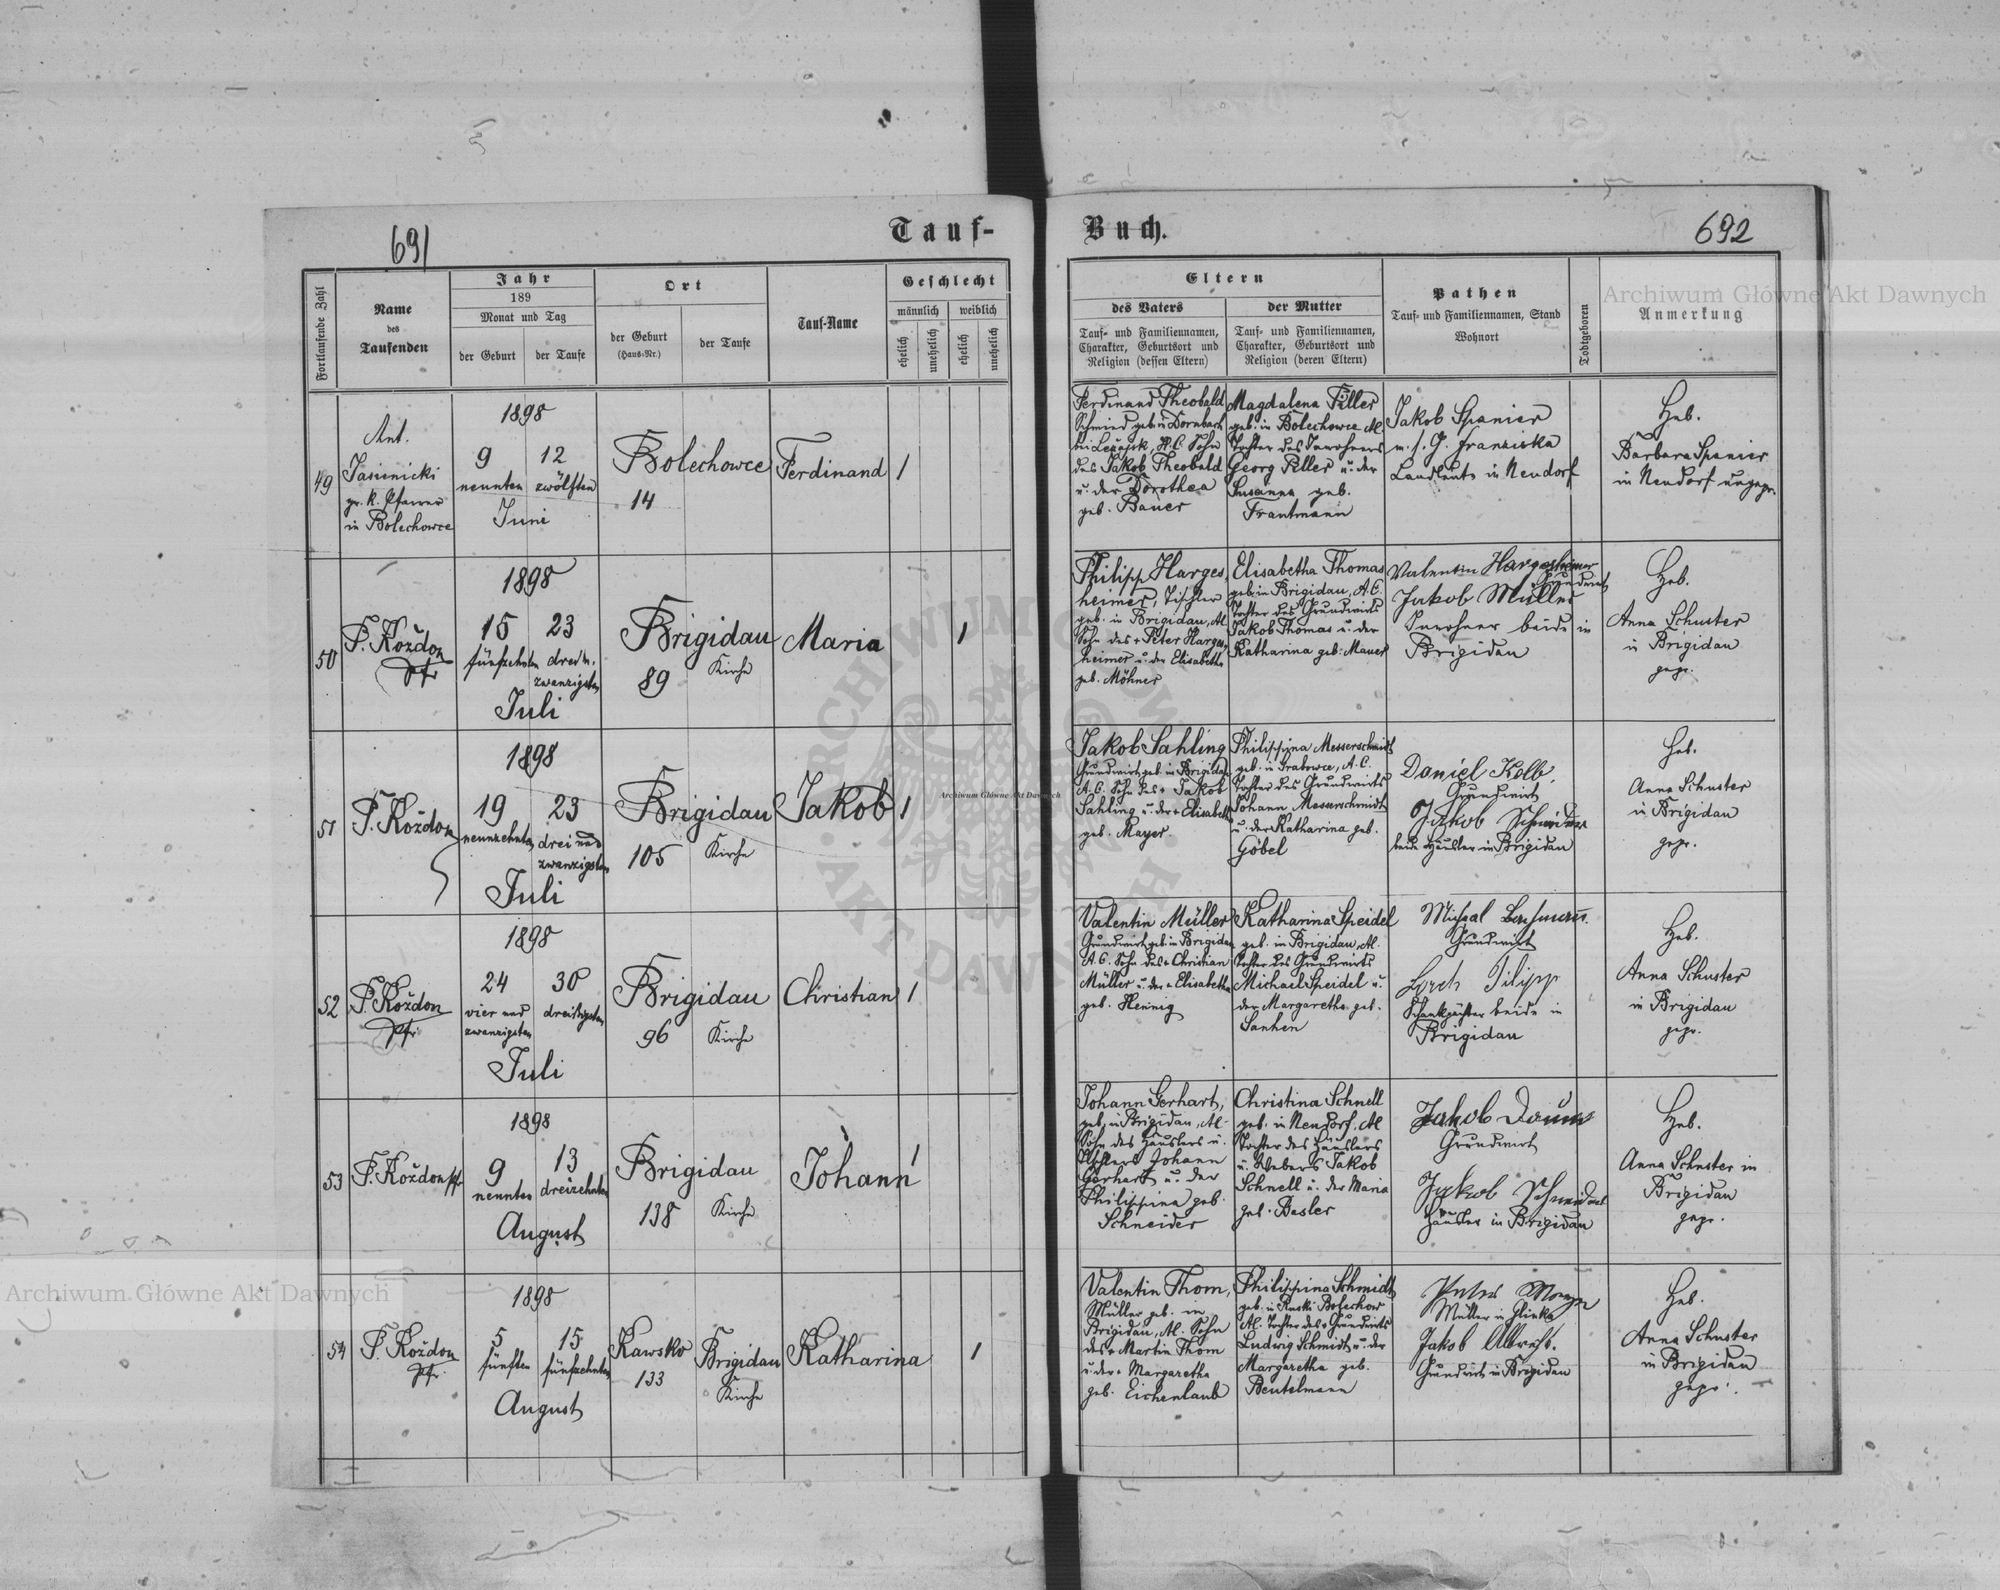 691
Tauf-
Buch.
692
Fortlaufende Zahl
Name
des
Taufenden
Jahr
189
Monat und Tag
der Geburt
der Taufe
Ort
der Geburt
(Haus-Nr.)
der Taufe
Tauf-Name
Geschlecht
männlich
weiblich
ehelich
unehelich
ehelich
unehelich
Eltern
des Vaters
Tauf- und Familiennamen,
Charakter, Geburtsort und
Religion (dessen Eltern)
der Mutter
Tauf- und Familiennamen,
Charakter, Geburtsort und
Religion (deren Eltern)
Pathen
Tauf- und Familiennamen, Stand
Wohnort
Todtgeboren
Anmerkung
Archiwum Główne Akt Dawnych
49
Ant.
Jasienicki
gr. k. Pfarrer
in Bolechowce
1898
9 12
neunten zwölften
Juni
Bolechowce
14
Ferdinand
1
Ferdinand Theobald
Schmied geb. in Dornbach
bei Leżajsk, H.C. Sohn
des Jakob Theobald
u. der Dorothea
geb. Bauer
Magdalena Piller
geb. in Bolechowce
Tochter des Inwohners
Georg Piller u. der
Susanna geb.
Trautmann
Jakob Spanier
m. s. G. Franziska
Landleute in Neudorf
Heb.
Barbara Spanier
in Neudorf ungepr.
50
F. Koždon
Pfr
1898
15 23
fünfzehnten drei u.
zwanzigsten
Juli
Brigidau
89
Kirche
Maria
1
Philipp Harges
heimer, Tischler
geb. in Brigidau, A.C.
Sohn des + Peter Harges
heimer u. der Elisabetha
geb. Möhner
Elisabetha Thomas
geb. in Brigidau, A.C.
Tochter des Grundwirts
Jakob Thomas u. der
Katharina geb. Mauer
Valentin Hargesheimer
Grundwirt
Jakob Müller
Inwohner beide in
Brigidau
Heb.
Anna Schuster
in Brigidau
gepr.
51
F. Koždon
1898
19 23
neunzehnten drei und
zwanzigsten
Juli
Brigidau
105
Kirche
Jakob
1
Jakob Sahling
Grundwirt geb. in Brigidau
A.C. Sohn des + Jakob
Sahling u. der + Elisabeth
geb. Mayer
Philippina Messerschmidt
geb. in Grabowce, A.C.
Tochter des Grundwirts
Johann Messerschmidt
u. der Katharina geb.
Göbel
Daniel Kolb,
Grundwirt
Jakob Schneider
beide Häusler in Brigidau
Heb.
Anna Schuster
in Brigidau
gepr.
52
F. Koždon
Pfr
1898
24 30
vier und dreißigsten
zwanzigsten
Juli
Brigidau
96
Kirche
Christian
1
Valentin Müller
Grundwirt geb. in Brigidau
A.C. Sohn des + Christian
Müller u. der + Elisabetha
geb. Hennig
Katharina Speidel
geb. in Brigidau, A.C.
Tochter des Grundwirts
Michael Speidel u.
der Margaretha geb.
Sanhen
Grundwirt
Lorch Filipp
beide in
Brigidau
Heb.
Anna Schuster
in Brigidau
gepr.
53
F. Koždon Pfr
1898
9 13
neunten dreizehnten
August
Brigidau
138
Kirche
Johann
1
Johann Gerhart,
geb. in Brigidau, A.C.
Sohn des Häuslers u.
Tischlers Johann
Gerhart u. der
Philippina geb.
Schneider
Christina Schnell
geb. in Neudorf, A.C.
Tochter des Häuslers
u. Webers Jakob
Schnell u. der Maria
geb. Besler
Jakob Daum
Grundwirt
Jakob Schneider
Häusler in Brigidau
Heb.
Anna Schuster in
Brigidau
gepr.
Archiwum Główne Akt Dawnych
54
F. Koždon
Pfr.
1898
5 15
fünften fünfzehnten
August
Kawsko
133
Brigidau
Kirche
Katharina
1
Valentin Thom,
Müller geb. in
Brigidau, A.C. Sohn
des + Martin Thom
u. der + Margaretha
geb. Eichenlaub
Philippina Schmidt
geb. in Ruski Bolechow
A.C. Tochter des + Grundwirts
Ludwig Schmidt u. der
Margaretha geb.
Beutelmann
Peter
Müller in
Jakob Albrecht.
Grundwirt in Brigidau
Heb.
Anna Schuster
in Brigidau
gepr.
ARCHIWUM GŁÓWNE AKT DAWNYCH
Archiwum Główne Akt Dawnych